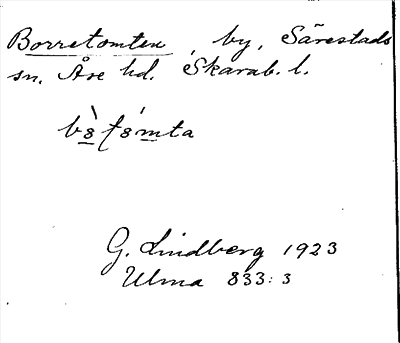 Borretomten, by, Särestads
sn. Åse hd. Skarab. l.
G. Lindberg 1923
Ulma 833:3